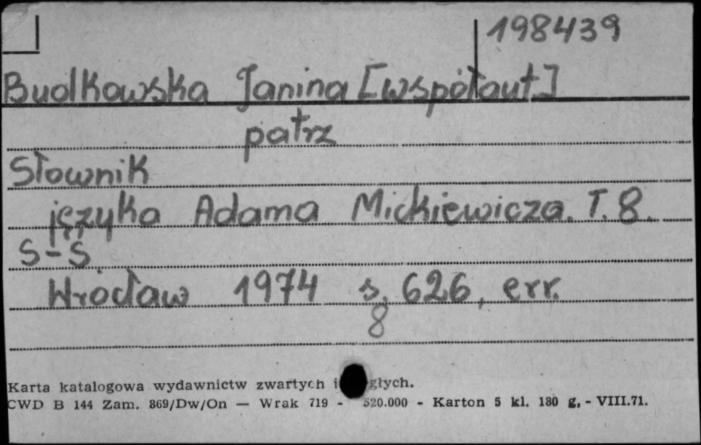 198439
Budkowska Janina [współaut]
patrz
Słownik
języka Adama Mickiewicza. T. 8.
S-Ś
Wrocław 1974 s. 626, err.
8
Karta katalogowa wydawnictw zwartych i
CWD B 144 Zam. 869/Dw/On — Wrak 719 - 520.000 - Karton 5 kl. 180 g. - VIII.71.